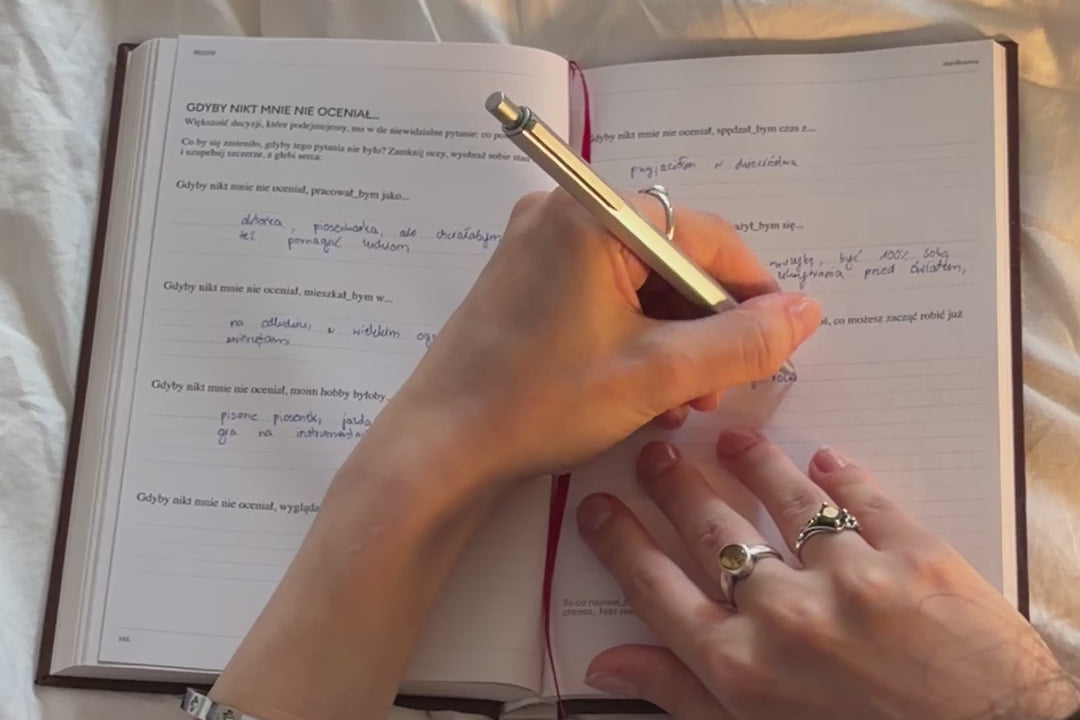 GDYBY NIKT MNIE NIE OCENIAŁ...
Większość decyzji, które podejmujemy, ma w tle niewidzialne pytanie: co
Co by się zmieniło, gdyby tego pytania nie było? Zamknij oczy, wyobraź sobie
i uzupełnij szczerze, z głębi serca:
Gdyby nikt mnie nie oceniał, pracował_bym jako...
aktorka, piosenkarka, ale chciałabym
też pomagać ludziom
Gdyby nikt mnie nie oceniał, mieszkał_bym w...
na odludziu, w wielkim
zwierzętami
Gdyby nikt mnie nie oceniał, moim hobby byłoby...
pisanie piosenek, jazda
gra na
Gdyby nikt mnie nie oceniał,
146
Gdyby nikt mnie nie oceniał, spędzał_bym czas z...
przyjaciółmi z dzieciństwa
bym się...
muzykę, być 100% sobą
pred światem,
co możesz zacząć robić już
To co
chcesz.